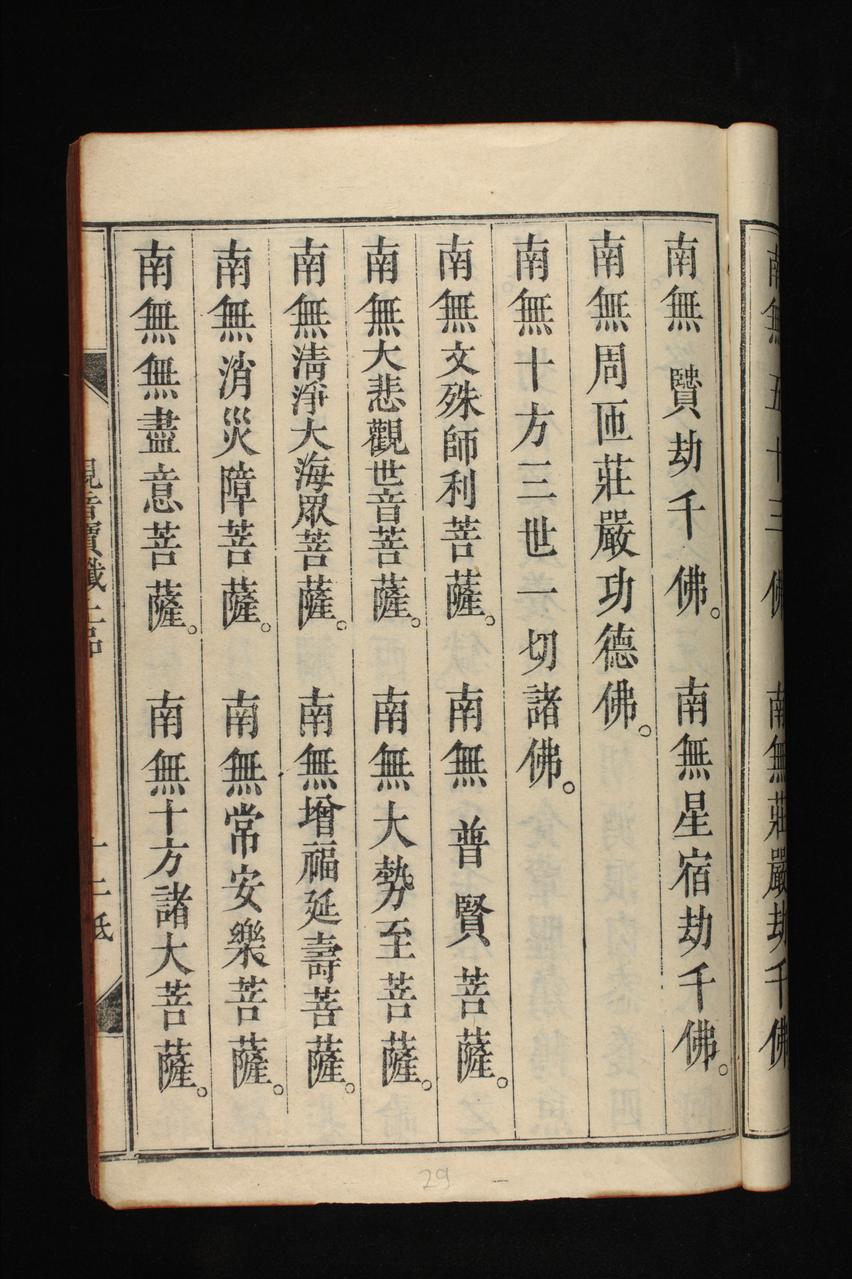 南無五十三佛 南無莊嚴劫千佛
南無賢劫千佛。 南無星宿劫千佛。
南無周匝莊嚴功德佛。
南無十方三世一切諸佛。
南無文殊師利菩薩。 南無普賢菩薩。
南無大悲觀世音菩薩。 南無大勢至菩薩。
南無清淨大海眾菩薩。 南無增福延壽菩薩。
南無消災障菩薩。 南無常安樂菩薩。
南無無盡意菩薩。 南無十方諸大菩薩。
觀音寶懺上
29